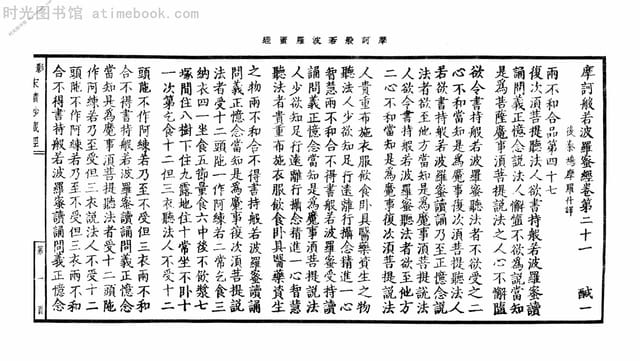 时光图书馆 - www.atimebook.com
經蜜羅波若般訶摩
摩訶般若波羅蜜經卷第二十一 醎一
後秦鳩摩羅什譯
兩不和合品第四十七
復次須菩提聽法人欲書持般若波羅蜜讀
誦問義正憶念說法人懈惰不欲為說當知
是為菩薩魔事須菩提說法之人心不懈惰
欲令書持般若波羅蜜聽法者不欲受之二
心不和當知是為魔事復次須菩提聽法人
欲書持般若波羅蜜讀誦乃至正憶念說
法者欲至他方當知是為魔事復次須菩提說
法人欲令書持般若波羅蜜聽法者欲至他方
二心不和當知是為魔事復次須菩提說法
人貴重布施衣服飲食臥具醫藥資生之物
聽法人少欲知足行遠離行攝念精進一心
智慧兩不和合不得書持般若波羅蜜受持讀
誦問義正憶念當知是為魔事須菩提說法
人少欲知足行遠離行攝念精進一心智慧
聽法者貴重布施衣服飲食臥具醫藥資生
之物兩不和合不得書持般若波羅蜜讀誦
問義正憶念當知是為魔事復次須菩提說
法者受十二頭陁一作阿練若二常乞食三
納衣四一坐食五節量食六中後不飲漿七
塚間住八樹下住九露地住十常坐不臥十
一次第乞食十二但三衣聽法人不受十二
頭陁不作阿練若乃至不受但三衣兩不和
合不得書持般若波羅蜜讀誦問義正憶念
當知是為魔事須菩提聽法者受十二頭陁
作阿練若乃至受但三衣說法人不受十二
頭陁不作阿練若乃至不受但三衣兩不和
合不得書持般若波羅蜜讀誦問義正憶念
影宋磧砂藏經
第一頁